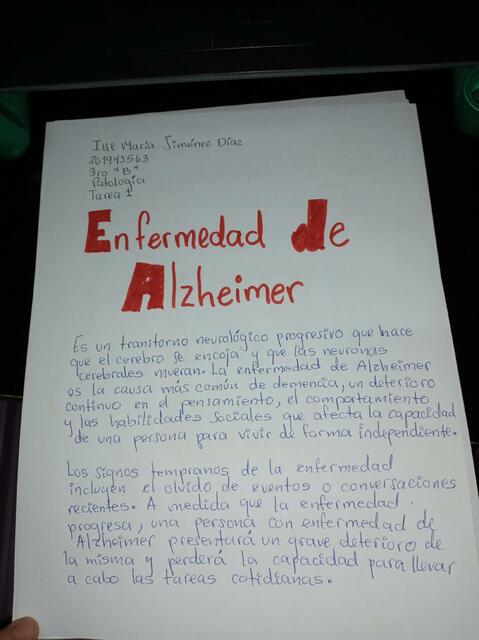 Ilse María Jiménez Díaz
201945563
3ro "B"
Patología
Tarea 1
Enfermedad de
Alzheimer
Es un transtorno neurológico progresivo que hace
que el cerebro se encoja y que las neuronas
cerebrales mueran. La enfermedad de Alzheimer
es la causa más común de demencia, un deterioro
continuo en el pensamiento, el comportamiento
y las habilidades sociales que afecta la capacidad
de una persona para vivir de forma independiente.
Los signos tempranos de la enfermedad
incluyen el olvido de eventos o conversaciones
recientes. A medida que la enfermedad
progresa, una persona con enfermedad de
Alzheimer presentará un grave deterioro de
la misma y perderá la capacidad para llevar
a cabo las tareas cotidianas.